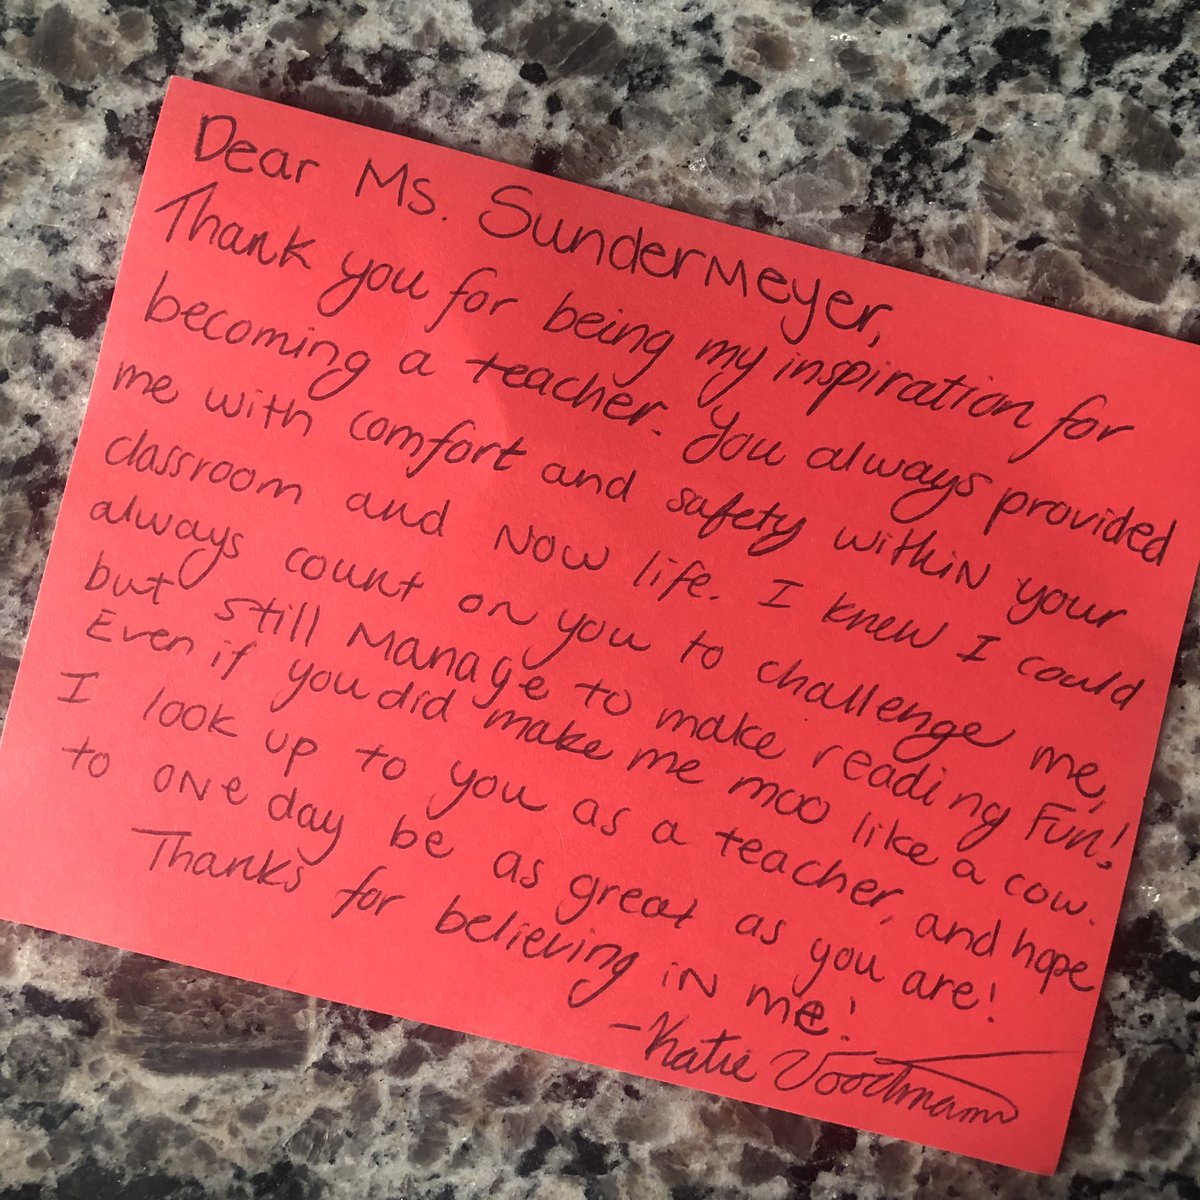 Dear Ms. Sundermeyer,
Thank you for being my inspiration for
becoming a teacher. You always provided
me with comfort and safety within your
classroom and now life. I knew I could
always count on you to challenge me,
but still manage to make reading fun!
Even if you did make me moo like a cow.
I look up to you as a teacher, and hope
to one day be as great as you are!
Thanks for believing in me!
-Katie